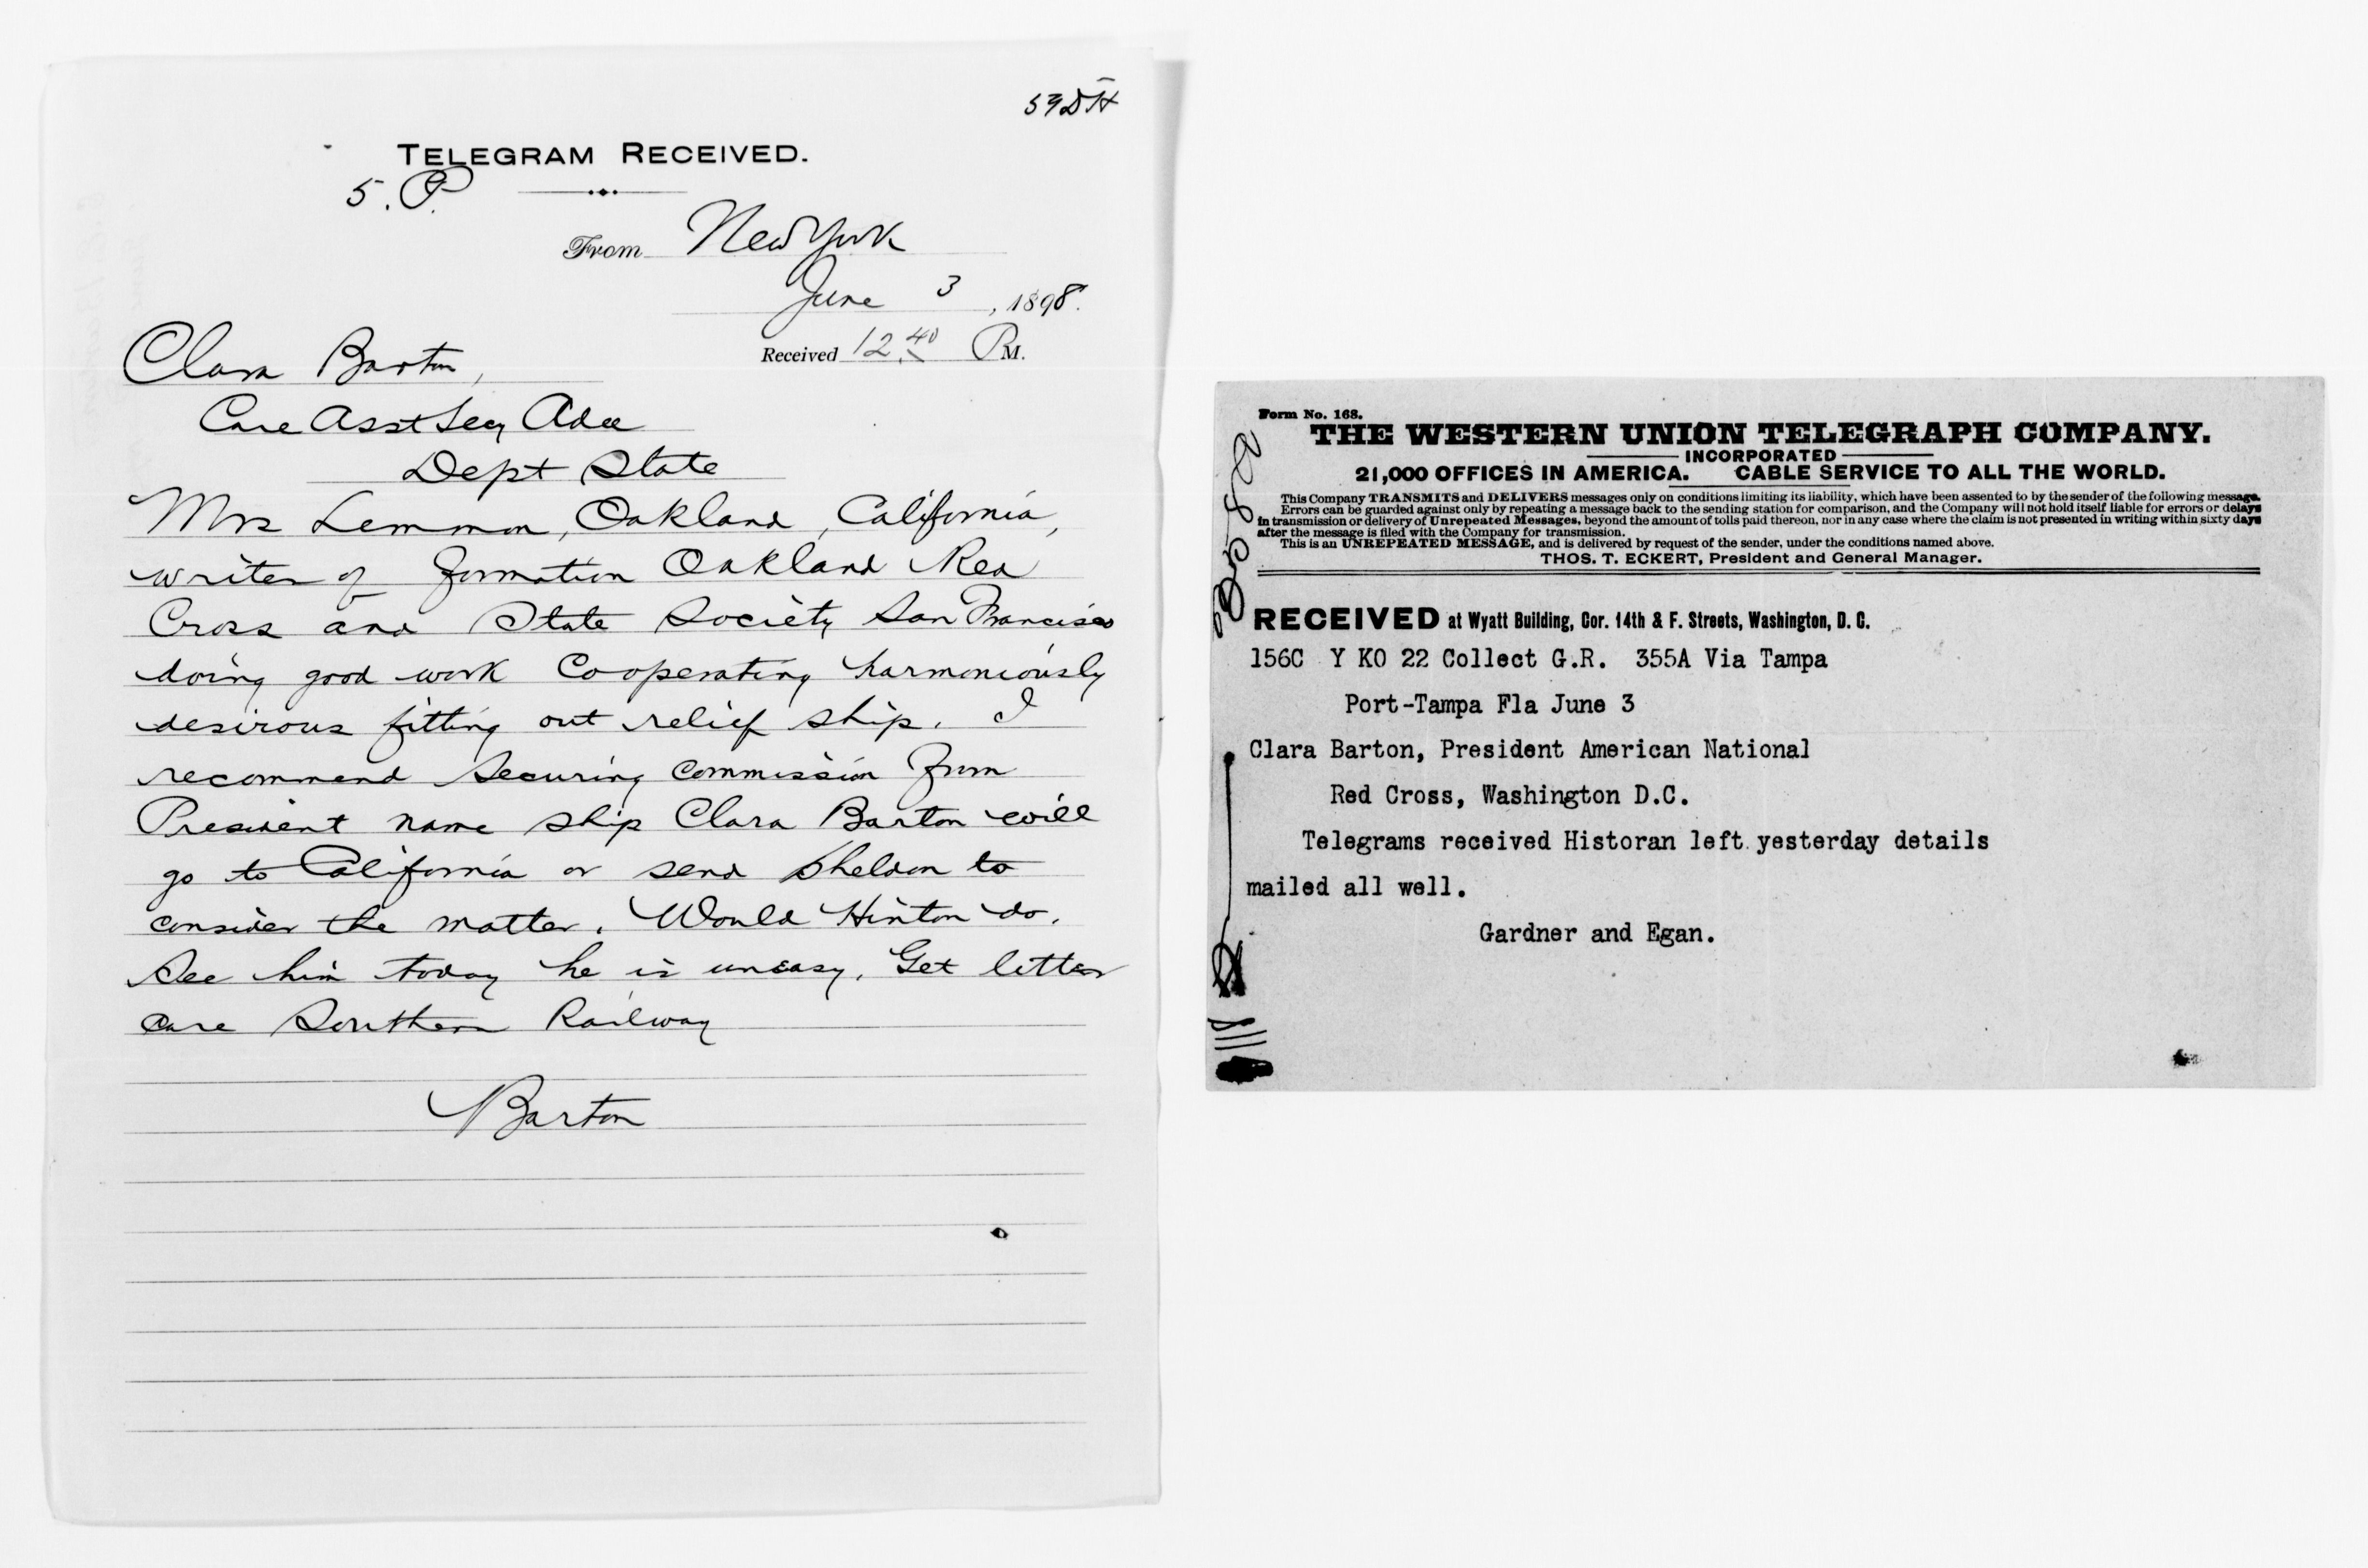 59DH
TELEGRAM RECEIVED.
5. P.
From New York
June 3, 1898.
Received 12.40 PM.
Clara Barton,
Care Asst Secy Adee
Dept State
Mrs Lemmon, Oakland, California,
writes of formation Oakland Red
Cross and State Society San Francisco
doing good work Cooperating harmoniously
desirous fitting out relief ship. I
recommend securing commission from
President name ship Clara Barton will
go to California or send Sheldon to
consider the matter. Would Hinton do.
See him today he is uneasy. Get letter
care Southern Railway
Barton
Form No. 168.
THE WESTERN UNION TELEGRAPH COMPANY.
INCORPORATED
21,000 OFFICES IN AMERICA. CABLE SERVICE TO ALL THE WORLD.
This Company TRANSMITS and DELIVERS messages only on conditions limiting its liability, which have been assented to by the sender of the following message.
Errors can be guarded against only by repeating a message back to the sending station for comparison, and the Company will not hold itself liable for errors or delays
in transmission or delivery of Unrepeated Messages, beyond the amount of tolls paid thereon, nor in any case where the claim is not presented in writing within sixty days
after the message is filed with the Company for transmission.
This is an UNREPEATED MESSAGE, and is delivered by request of the sender, under the conditions named above.
THOS. T. ECKERT, President and General Manager.
RECEIVED at Wyatt Building, Cor. 14th & F. Streets, Washington, D. C.
156C Y KO 22 Collect G.R. 355A Via Tampa
Port-Tampa Fla June 3
Clara Barton, President American National
Red Cross, Washington D.C.
Telegrams received Historan left yesterday details
mailed all well.
Gardner and Egan.